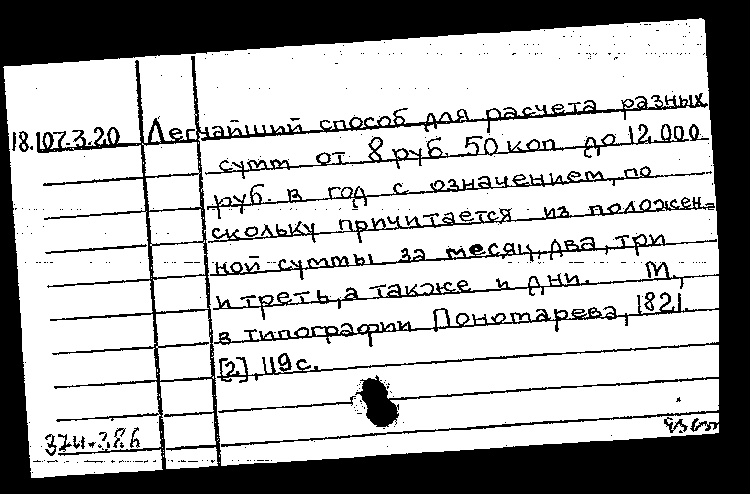 18.107.3.20 Легчайший способ для расчета разных
сумм от 8 руб. 50 коп до 12.000
руб. в год с означением, по
скольку причитается из положен=
ной суммы за месяц, два, три
и треть, а также и дни. М.,
в типографии Пономарева, 1821.
[2], 119 с.
374-386